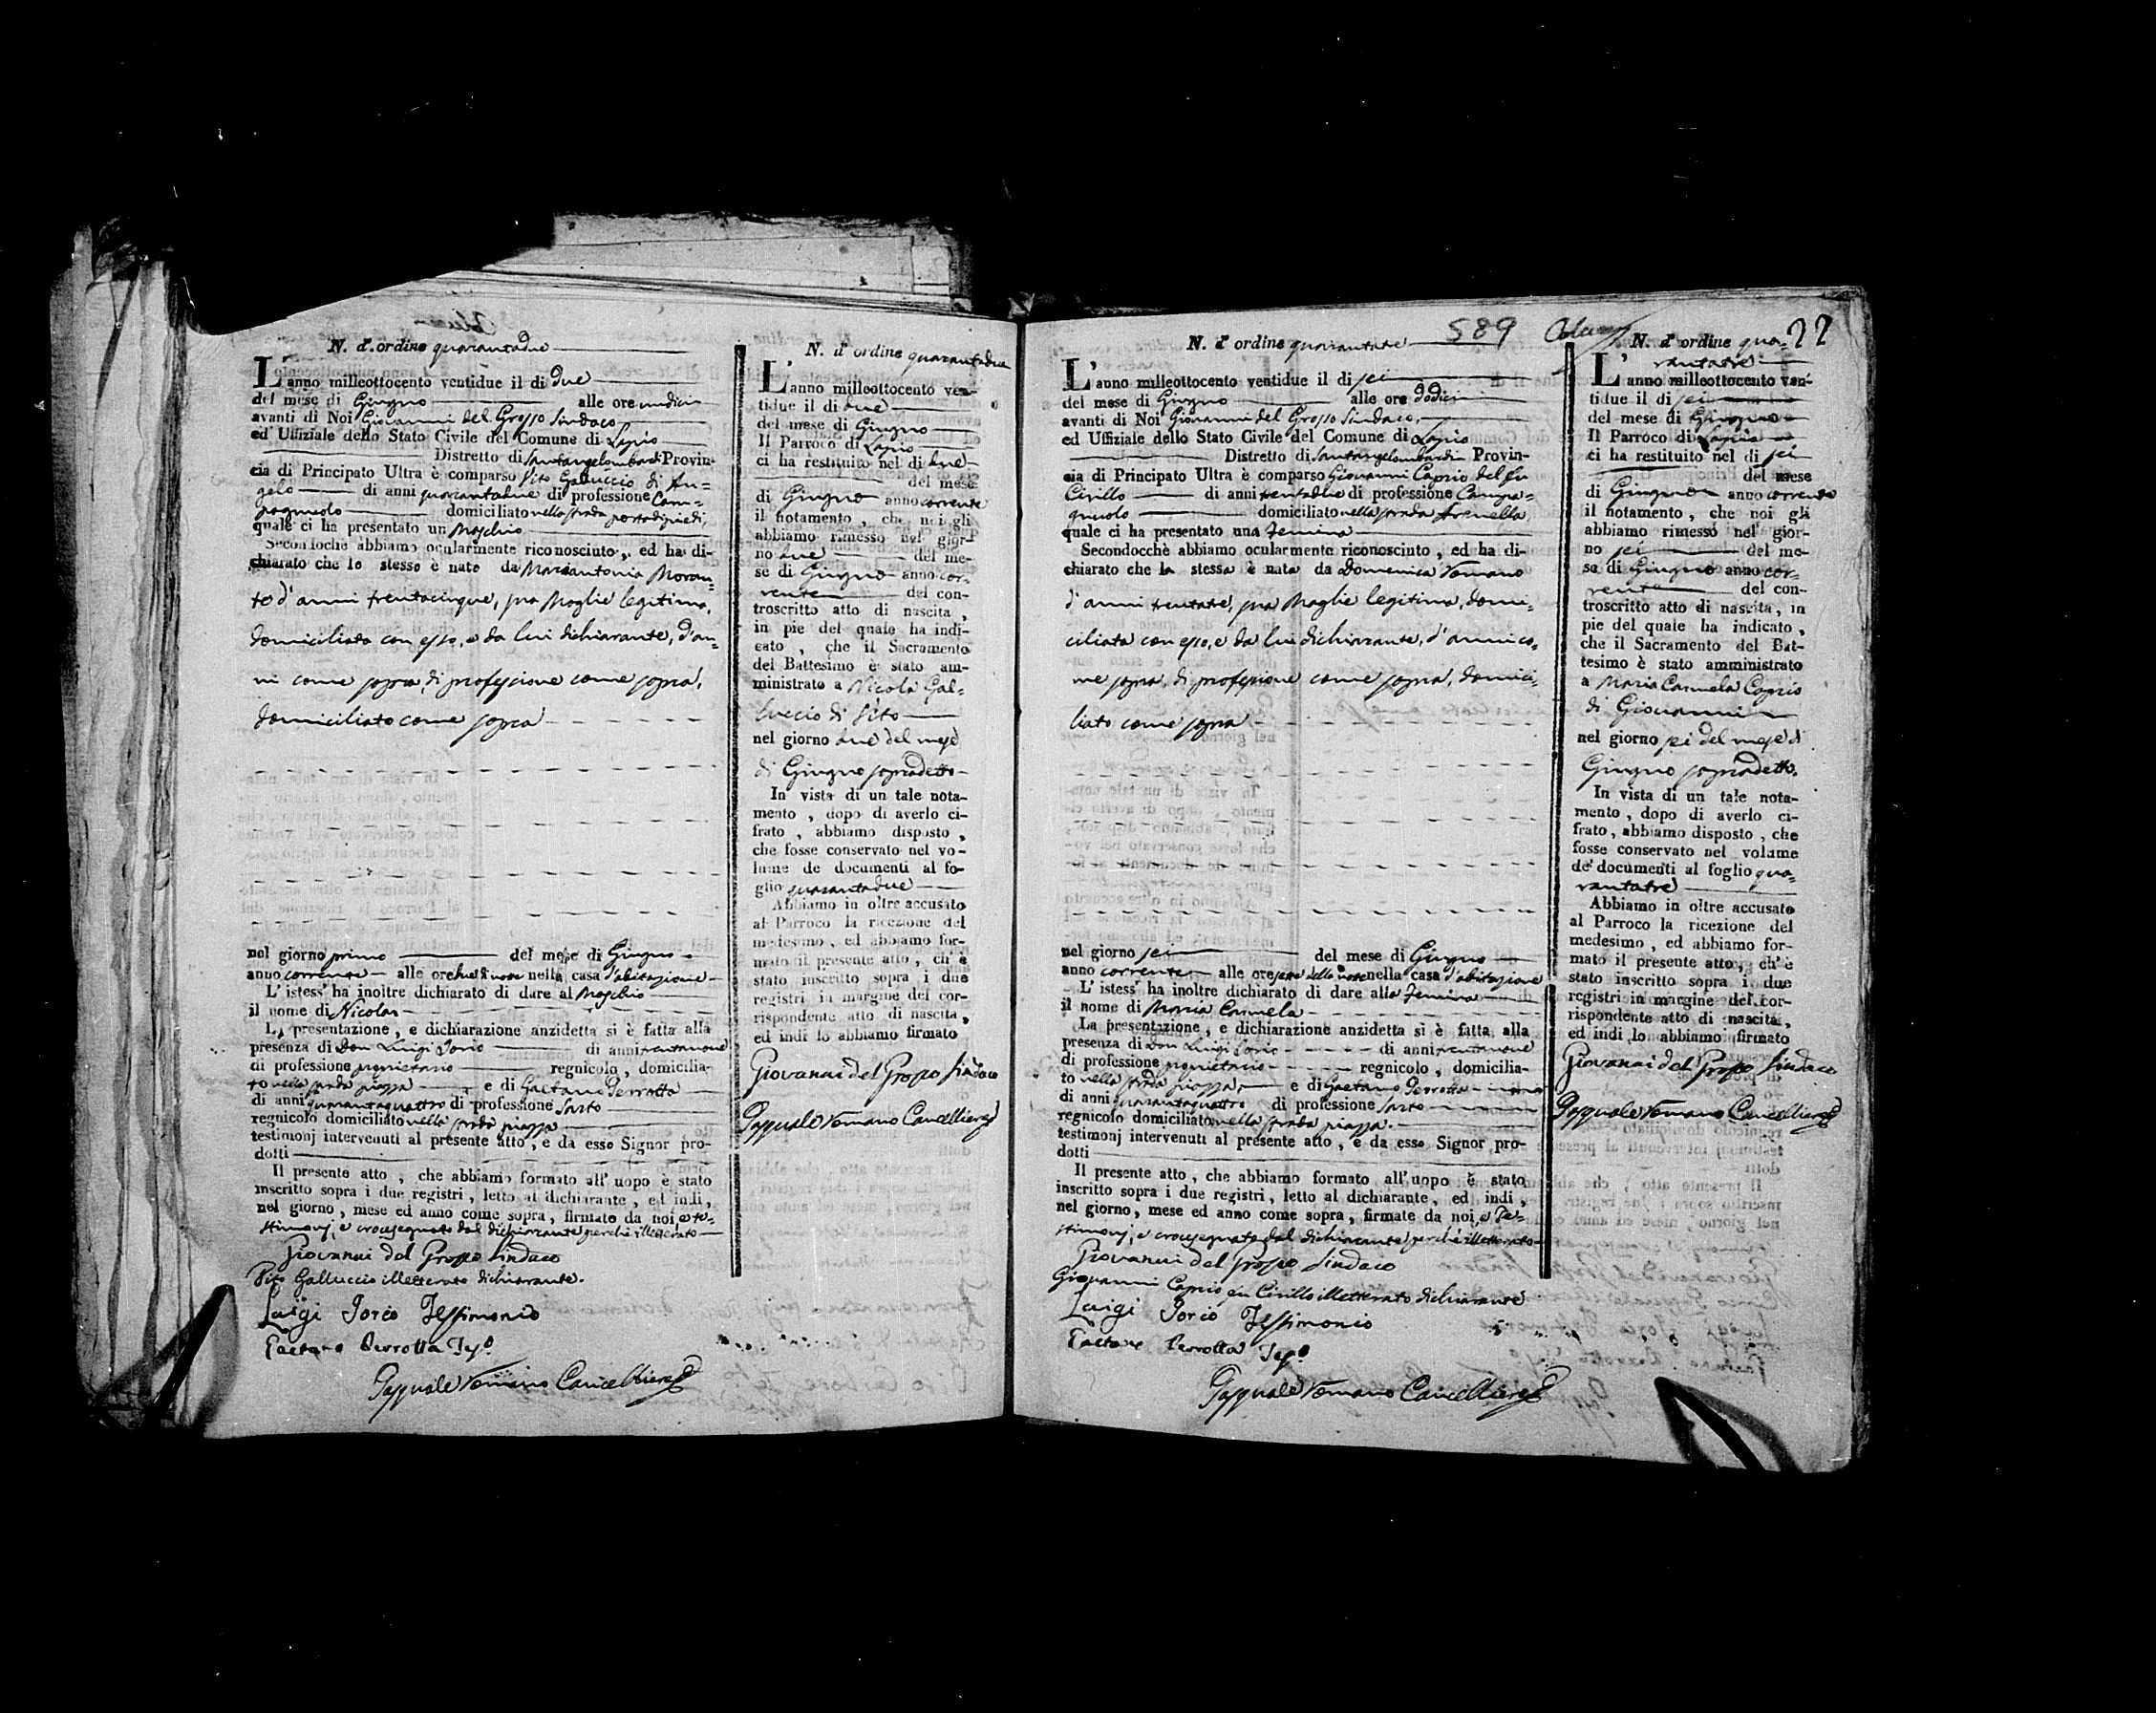 N. d'ordine quarantadue
L'anno milleottocento ventidue il di due
del mese di Giugno alle ore undici
avanti di Noi Giovanni del Grosso Sindaco
ed Uffiziale dello Stato Civile del Comune di Lapio
Distretto di Santangelombardi Provin-
cia di Principato Ultra è comparso Vito Galluccio di An-
gelo di anni quarantadue di professione Cam-
pagnuolo domiciliato nella strada
quale ci ha presentato un Maschio
Secondochè abbiamo ocularmente riconosciuto, ed ha di-
chiarato che lo stesso è nato da Mariantonia Moran-
to d'anni trentacinque, sua Moglie legitima,
domiciliata con esso, e da lui dichiarante, d'an-
ni come sopra, di professione come sopra,
domiciliato come sopra
nel giorno primo del mese di Giugno
anno corrente alle ore nella casa d'abitazione
L'istess' ha inoltre dichiarato di dare al Maschio
il nome di Nicola
La presentazione, e dichiarazione anzidetta si è fatta alla
presenza di Don Luigi Iorio di anni trentanove
di professione proprietario regnicolo, domicilia-
to nella strada piazza e di Gaetano Perrotta
di anni quarantaquattro di professione Sarto
regnicolo domiciliato nella strada piazza
testimonj intervenuti al presente atto, e da esso Signor pro-
dotti
Il presente atto, che abbiamo formato all'uopo è stato
inscritto sopra i due registri, letto al dichiarante, ed indi,
nel giorno, mese ed anno come sopra, firmato da noi, e te-
stimonj, e crocesegnato dal dichiarante perchè illetterato
Giovanni del Grosso Sindaco
Vito Galluccio illetterato dichiarante.
Luigi Iorio Testimonio
Gaetano Perrotta Tes.o
Pasquale Romano Cancelliere
N. d'ordine quarantadue
L'anno milleottocento ven-
tidue il di due
del mese di Giugno
Il Parroco di Lapio
ci ha restituito nel di due
del mese
di Giugno anno corrente
il notamento, che noi gli
abbiamo rimesso nel gior-
no due del me-
se di Giugno anno cor-
rente del con-
troscritto atto di nascita,
in pie del quale ha indi-
cato, che il Sacramento
del Battesimo è stato am-
ministrato a Nicola Gal-
luccio di Vito
nel giorno due del mese
di Giugno sopradetto
In vista di un tale nota-
mento, dopo di averlo ci-
frato, abbiamo disposto,
che fosse conservato nel vo-
lume de documenti al fo-
glio quarantadue
Abbiamo in oltre accusato
al Parroco la ricezione del
medesimo, ed abbiamo for-
mato il presente atto, ch'è
stato inscritto sopra i due
registri in margine del cor-
rispondente atto di nascita,
ed indi lo abbiamo firmato
Giovanni del Grosso Sindaco
Pasquale Romano Cancelliere
589
22
N. d'ordine quarantatre
L'anno milleottocento ventidue il di sei
del mese di Giugno alle ore dodici
avanti di Noi Giovanni del Grosso Sindaco,
ed Uffiziale dello Stato Civile del Comune di Lapio
Distretto di Santangelombardi Provin-
cia di Principato Ultra è comparso Giovanni Caprio del fu
Cirillo di anni trentadue di professione Campa-
gnuolo domiciliato nella strada Arenella
quale ci ha presentato una Femina
Secondocchè abbiamo ocularmente riconosciuto, ed ha di-
chiarato che la stessa è nata da Domenica Romano
d'anni trentatre, sua Moglie legitima, domi-
ciliata con esso, e da lui dichiarante, d'anni co-
me sopra, di professione come sopra, domici-
liato come sopra
nel giorno sei del mese di Giugno
anno corrente alle ore sette della notte nella casa d'abitazione
L'istess' ha inoltre dichiarato di dare alla Femina
il nome di Maria Carmela
La presentazione, e dichiarazione anzidetta si è fatta alla
presenza di Don Luigi Iorio di anni trentanove
di professione proprietario regnicolo, domicilia-
to nella strada piazza, e di Gaetano Perrotta
di anni quarantaquattro di professione Sarto
regnicolo domiciliato nella strada piazza.
testimonj intervenuti al presente atto, e da esso Signor pro-
dotti
Il presente atto, che abbiamo formato all'uopo è stato
inscritto sopra i due registri, letto al dichiarante, ed indi,
nel giorno, mese ed anno come sopra, firmate da noi, e Te-
stimonj, e crocesegnato dal dichiarante perchè illetterato
Giovanni del Grosso Sindaco
Giovanni Caprio fu Cirillo illetterato dichiarante
Luigi Iorio Testimonio
Gaetano Perrotta Tes.o
Pasquale Romano Cancelliere
N. d'ordine qua-
rantatre
L'anno milleottocento ven-
tidue il di sei
del mese di Giugno
Il Parroco di Lapio
ci ha restituito nel di sei
del mese
di Giugno anno corrente
il notamento, che noi gli
abbiamo rimesso nel gior-
no sei del me-
se di Giugno anno cor-
rente del con-
troscritto atto di nascita, in
pie del quale ha indicato,
che il Sacramento del Bat-
tesimo è stato amministrato
a Maria Carmela Caprio
di Giovanni
nel giorno sei del mese di
Giugno sopradetto.
In vista di un tale nota-
mento, dopo di averlo ci-
frato, abbiamo disposto, che
fosse conservato nel volume
de' documenti al foglio qua-
rantatre
Abbiamo in oltre accusato
al Parroco la ricezione del
medesimo, ed abbiamo for-
mato il presente atto, ch'è
stato inscritto sopra i due
registri in margine del cor-
rispondente atto di nascita,
ed indi lo abbiamo firmato
Giovanni del Grosso Sindaco
Pasquale Romano Cancelliere